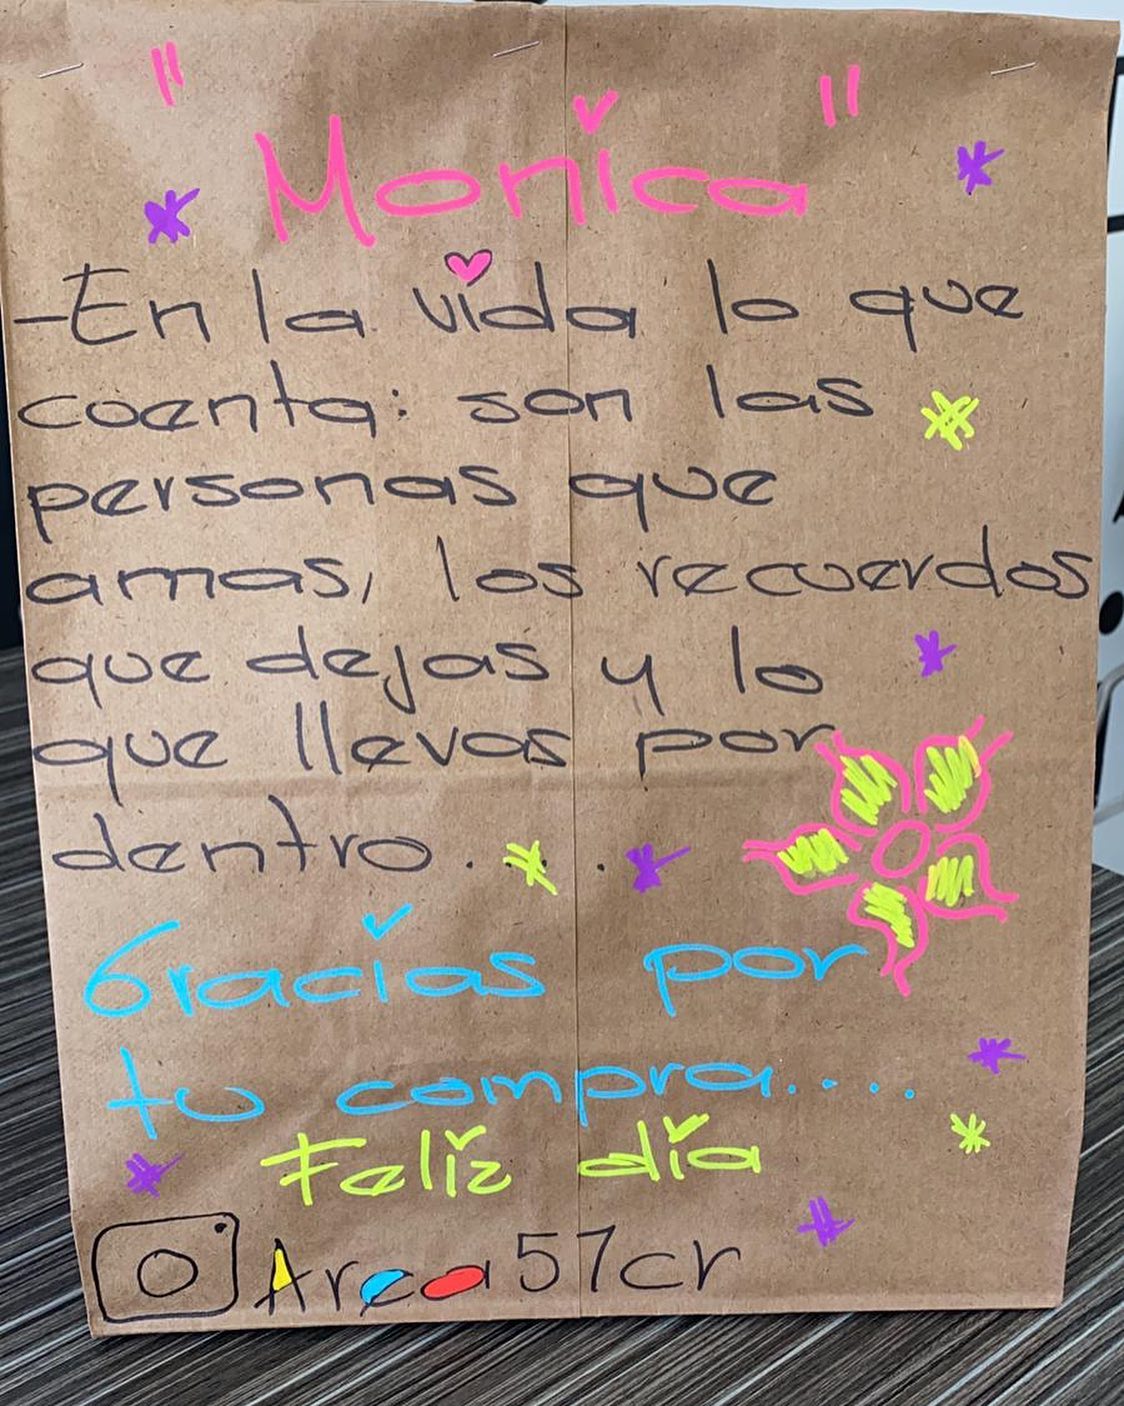 "Monica"
-En la vida lo que
cuenta: son las
personas que
amas, los recuerdos
que dejas y lo
que llevas por
dentro...
Gracias por
tu compra....
Feliz día
Area57cr